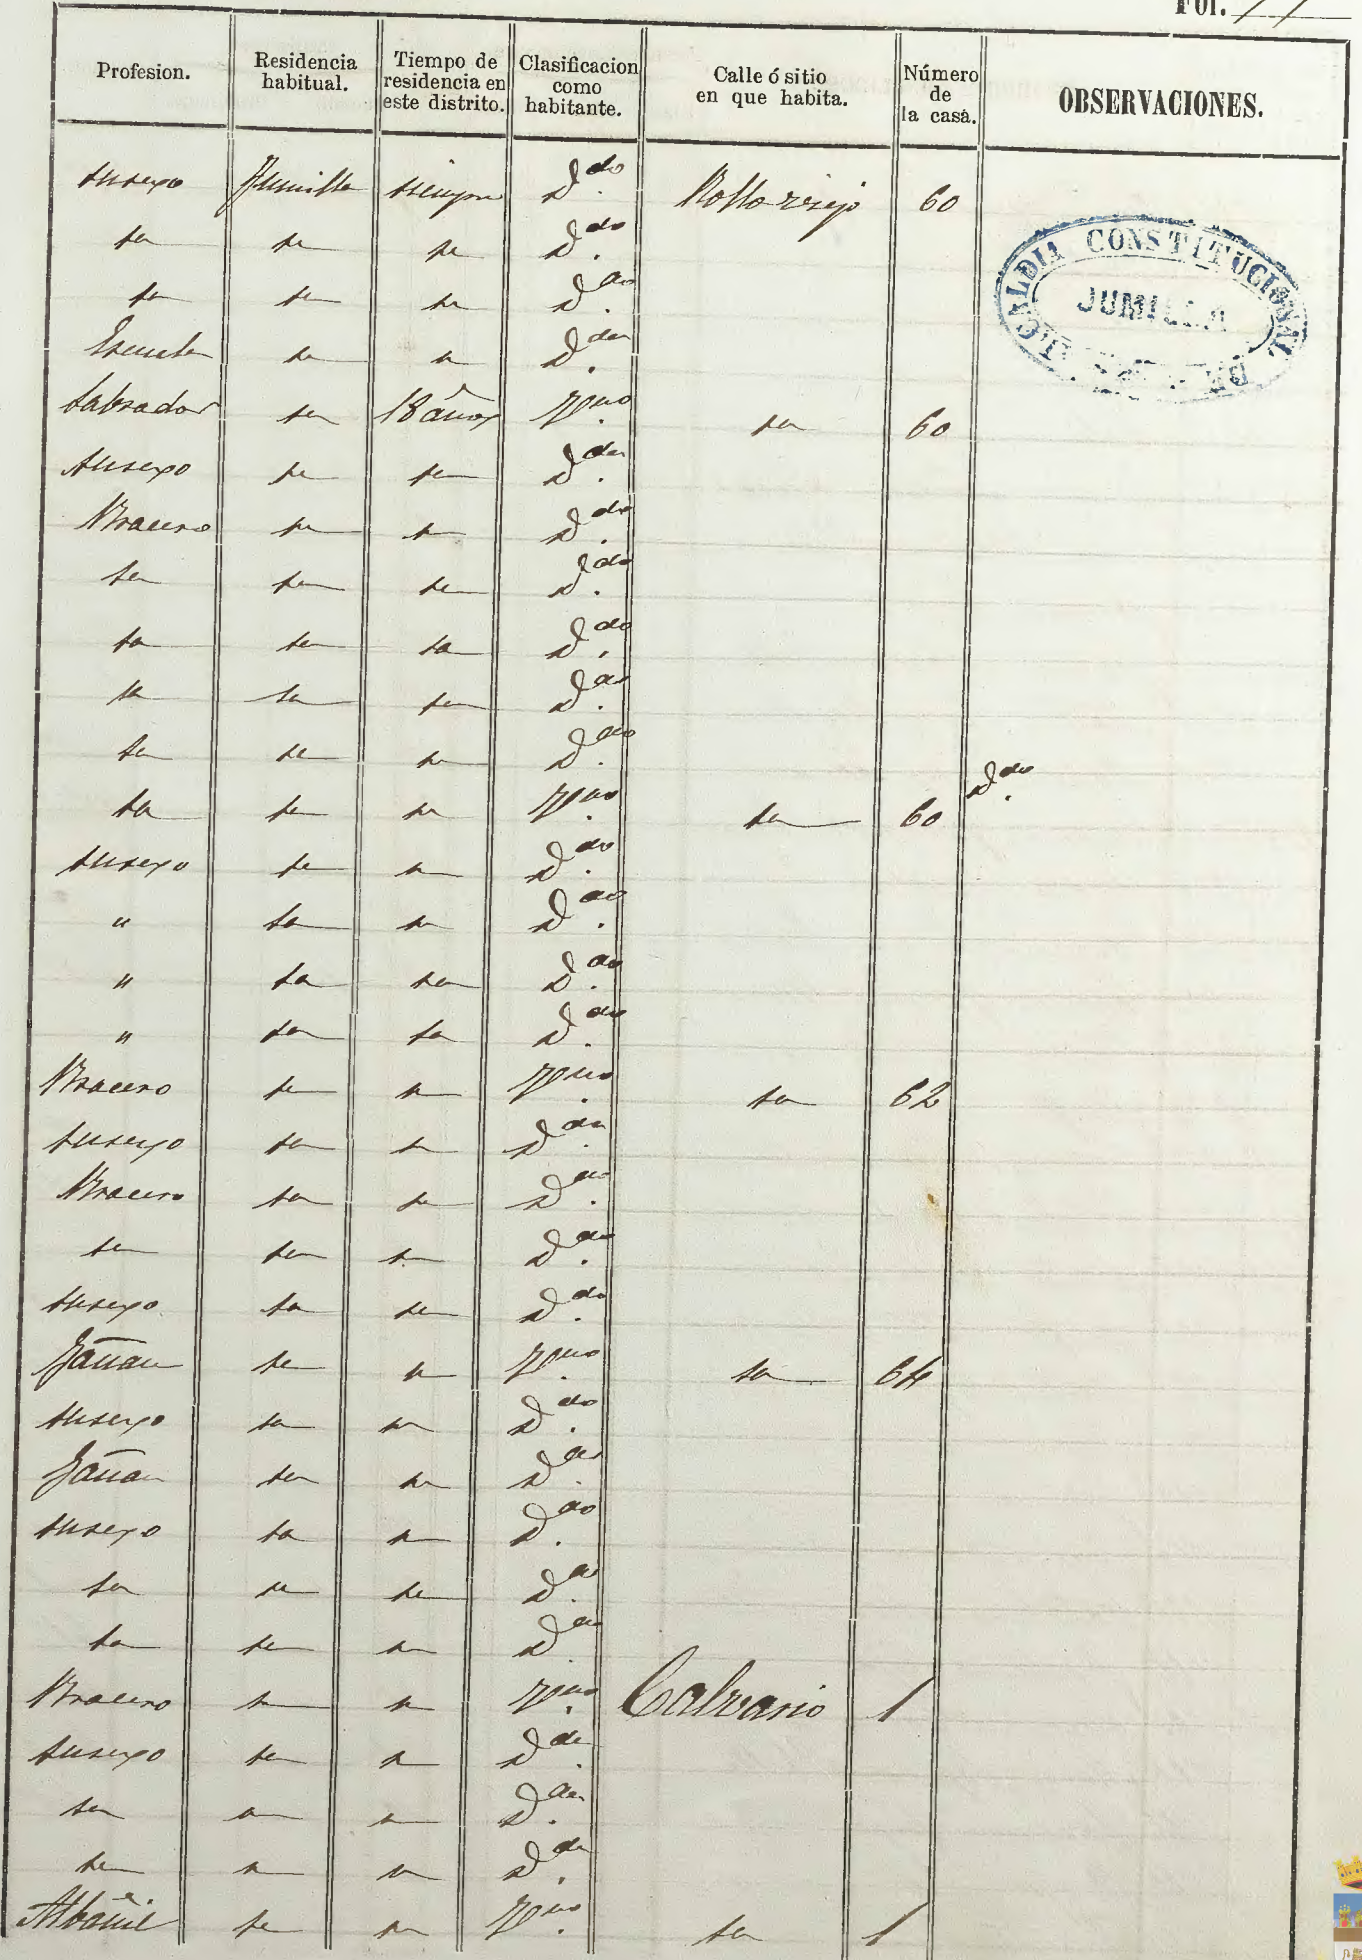 Fol. 77
Profesion. Residencia habitual. Tiempo de residencia en este distrito. Clasificacion como habitante. Calle ó sitio en que habita. Número de la casa. OBSERVACIONES.
su sexo Jumilla siempre d.do Rollo viejo 60
ALCALDIA CONSTITUCIONAL DE
JUMILLA
id id id d.do
id id id d.do
Escuela id id d.do
Labrador id 18 años v.no id 60
su sexo id id d.da
Bracero id id d.do
id id id d.do
id id id d.do
id id id d.do
id id id d.do
id id id v.no id 60 d.do
su sexo id id d.do
" id id d.do
" id id d.do
" id id d.do
Bracero id id v.no id 62
su sexo id id d.da
Bracero id id d.do
id id id d.do
su sexo id id d.do
Jañan id id v.no id 64
su sexo id id d.do
Jañan id id d.do
su sexo id id d.do
id id id d.do
id id id d.do
Bracero id id v.no Calvario 1
su sexo id id d.da
id id id d.da
id id id d.da
Albañil id id v.no id 1